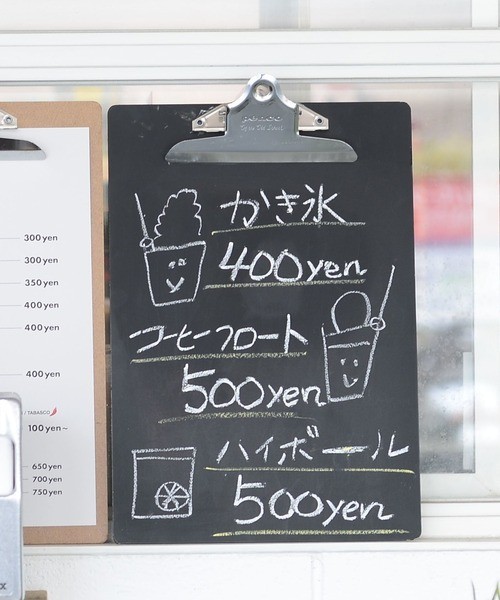 penco
かき氷
400yen
コーヒーフロート
500yen
ハイボール
500yen
300 yen
300 yen
350 yen
400 yen
400 yen
400 yen
/ TABASCO
100 yen~
650 yen
700 yen
750 yen